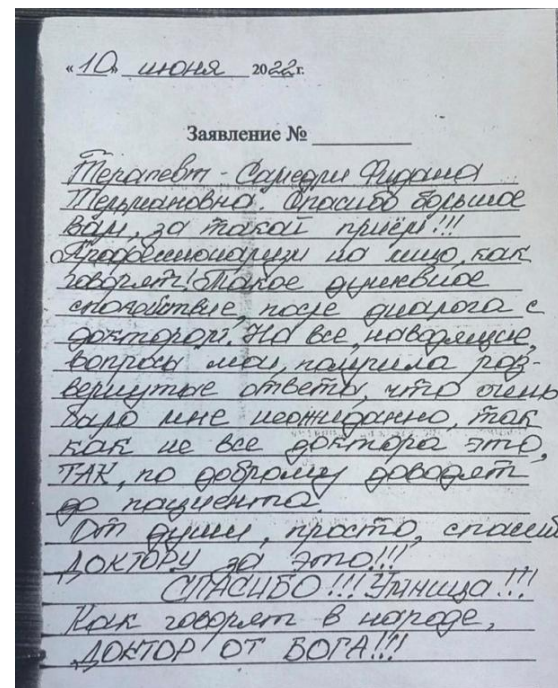 «10» июня 2022г.
Заявление №
Терапевт - Самедри Фидана
Тельмановна. Спасибо большое
вам, за такой приём!!!
Профессионализм на лицо, как
говорят! Такое душевное
спокойствие, после диалога с
доктором. На все, наводящие,
вопросы мои, получила раз-
вернутые ответы, что очень
было мне неожиданно, так
как не все доктора это,
ТАК, по доброму доводят
до пациента.
От души, просто, спасибо
ДОКТОРУ за это!!!
СПАСИБО!!! Умница!!!
Как говорят в народе,
ДОКТОР ОТ БОГА!!!